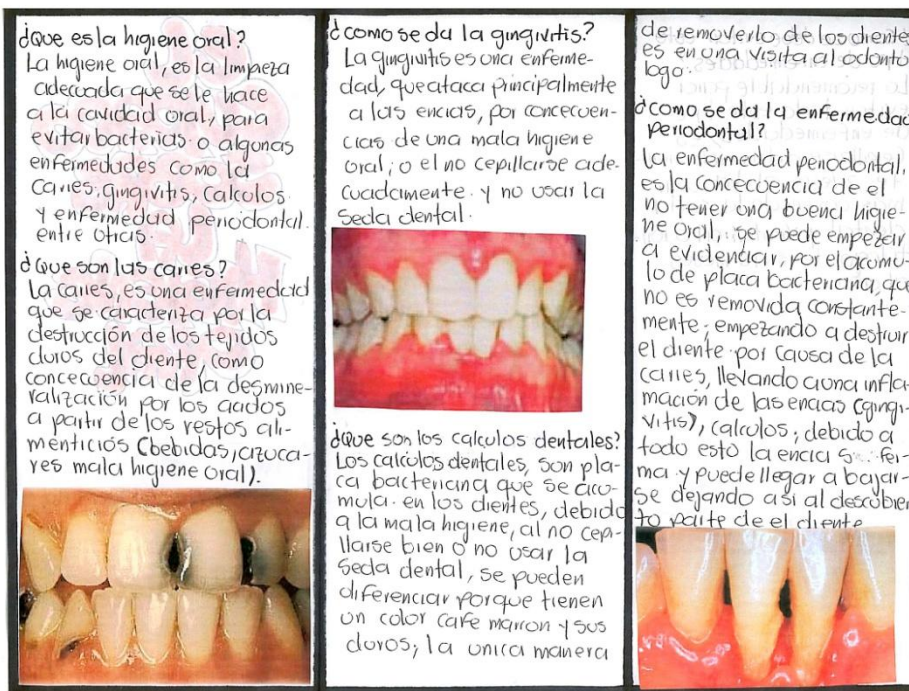 ¿Que es la higiene oral?
La higiene oral, es la limpieza
adecuada que se le hace
a la cavidad oral, para
evitar bacterias o algunas
enfermedades como la
caries, gingivitis, calculos
y enfermedad periodontal.
entre otras.
¿Que son las caries?
La caries, es una enfermedad
que se caracteriza por la
destrucción de los tejidos
duros del diente, como
concecuencia de la desmine-
ralización por los acidos
a partir de los restos ali-
menticios (bebidas, azuca-
res mala higiene oral).
¿como se da la gingivitis?
La gingivitis es una enferme-
dad, que ataca principalmente
a las encias, por concecuen-
cias de una mala higiene
oral; o el no cepillarse ade-
cuadamente. y no usar la
seda dental.
¿Que son los calculos dentales?
Los calculos dentales, son pla-
ca bacteriana que se acu-
mula. en los dientes, debido
a la mala higiene, al no cepi-
llarse bien o no usar la
seda dental, se pueden
diferenciar porque tienen
un color cafe marron y sus
duros; la unica manera
de removerlo de los diente
es en una visita al odonto
logo.
¿como se da la enfermedad
periodontal?
La enfermedad periodontal,
es la concecuencia de el
no tener una buena higie-
ne oral, se puede empezar
a evidenciar, por el acumu-
lo de placa bacteriana, que
no es removida constante-
mente; empezando a destruir
el diente por causa de la
caries, llevando a una infla-
mación de las encias (gingi-
vitis), calculos; debido a
todo esto la encia
ma y puede llegar a bajar-
se dejando asi al descubier
to parte de el diente